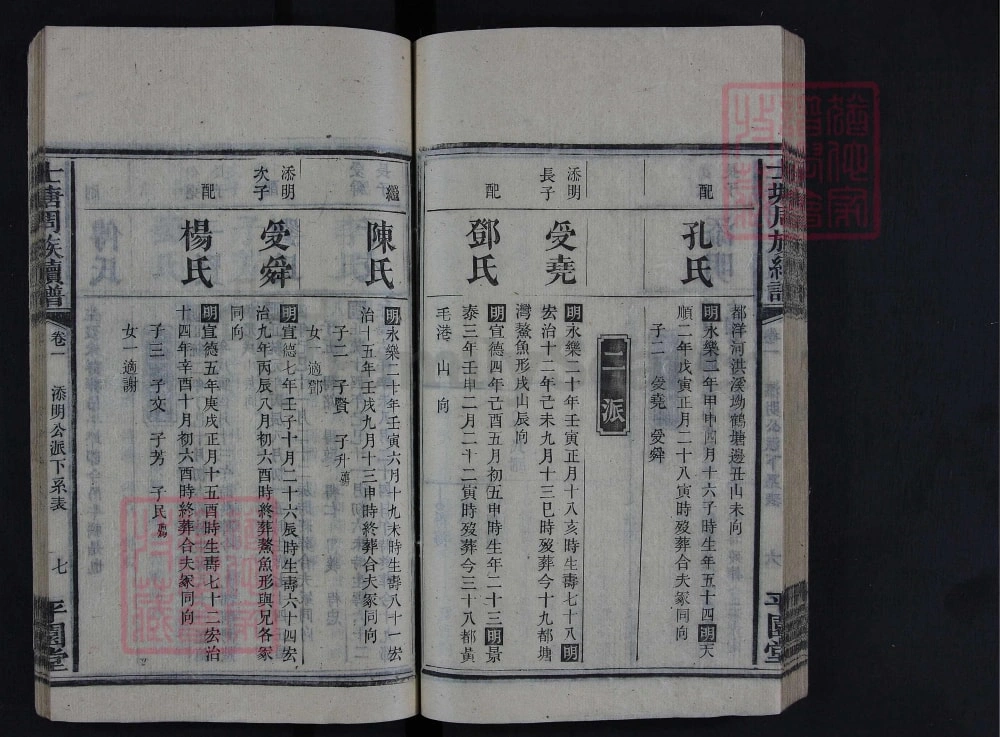 士塘周族續譜
卷一
六
平園堂
都洋河洪溪坳鶴塘邊丑山未向
配
孔氏
明永樂二年甲申四月十六子時生年五十四明天
順二年戊寅正月二十八寅時歿葬合夫冢同向
子二 受堯 受舜
二派
添明
長子
受堯
明永樂二十年壬寅正月十八亥時生壽七十八明
宏治十二年己未九月十三巳時歿葬今十九都塘
灣鰲魚形戌山辰向
配
鄧氏
明宣德四年己酉五月初五申時生年二十三明景
泰三年壬申二月二十二寅時歿葬今三十八都黃
毛港 山 向
繼
陳氏
明永樂二十年壬寅六月十九未時生壽八十一宏
治十五年壬戌九月十三申時終葬合夫冢同向
子二 子賢 子升
女一適鄧
添明
次子
受舜
明宣德七年壬子十月二十六辰時生壽六十四宏
治九年丙辰八月初六酉時終葬鰲魚形與兄各冢
同向
配
楊氏
明宣德五年庚戌正月十五酉時生壽七十二宏治
十四年辛酉十月初六酉時終葬合夫冢同向
子三 子文 子芳 子民
女一適謝
士塘周族續譜
卷一
添明公派下系表
七
平園堂